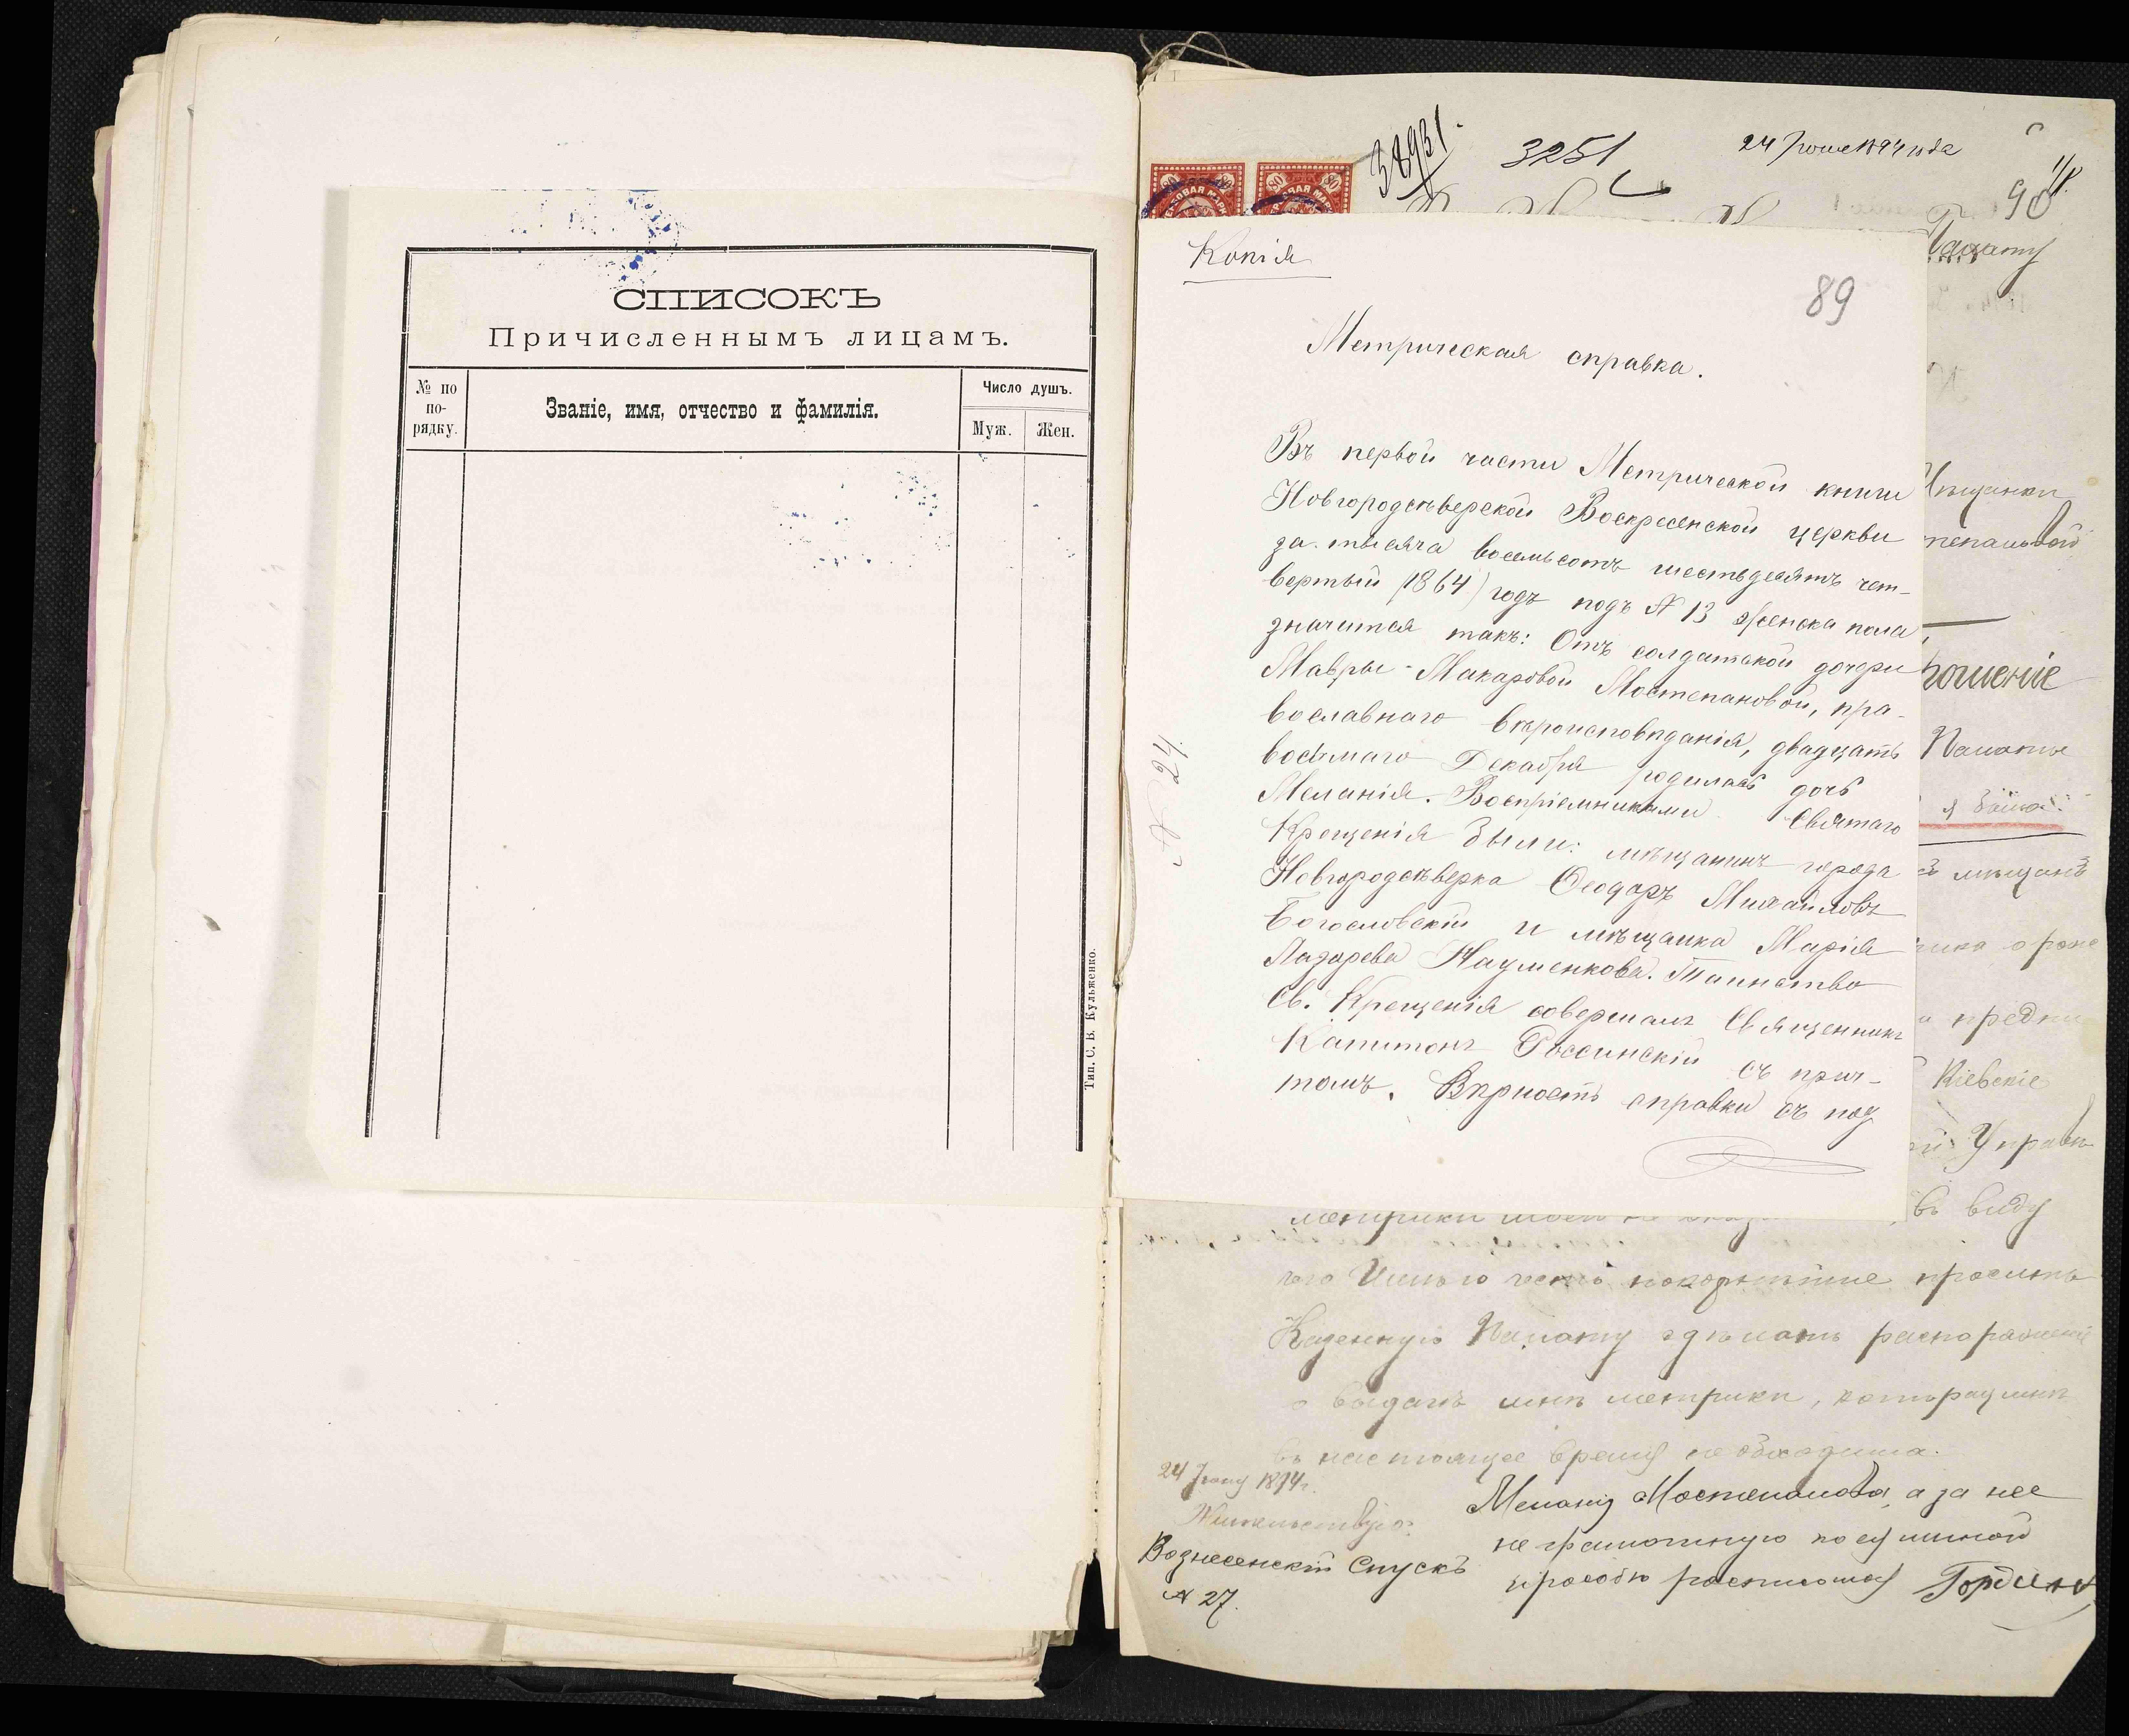 СПИСОКЪ
Причисленнымъ лицамъ.
№ по
по-
рядку.
Званіе, имя, отчество и фамилія.
Число душъ.
Муж.
Жен.
Тип. С. В. Кульженко.
38931.
3251
24 Іюня 1894 года
90
Палату
Копія
89
Метрическая справка.
Въ первой части Метрической книги
Новгородсѣверской Воскресенской церкви
за тысяча восемьсотъ шестьдесятъ чет-
вертый (1864) годъ подъ № 13 женска пола,
значится такъ: Отъ солдатской дочери
Мавры Макаровой Мостепановой, пра-
вославнаго вѣроисповѣданія, двадцать
восьмаго Декабря родилась дочь
Меланія. Воспріемниками Святаго
Крещенія были: мѣщанинъ города
Новгородсѣверка Ѳеодоръ Михайловъ
Богословскій и мѣщанка Марія
Лазарева Науменкова. Таинство
Св. Крещенія совершалъ Священникъ
Капитонъ Россинскій съ прич-
томъ. Вѣрность справки съ под
№ 24.
Мѣщанки
тепановой
ошеніе
Палаты
мѣщанъ
предки
Кіевскіе
Управѣ
въ виду
чего Имѣю честь покорнѣйше просить
Казенную Палату сдѣлать распоряженіе
о выдачѣ мнѣ метрики, которая мнѣ
въ настоящее время необходима.
24 Іюня 1894 г.
Жительствую:
Вознесенскій Спускъ
№ 27.
Меланія Мостепанова, а за нее
неграмотную по ея личной
просьбѣ росписался